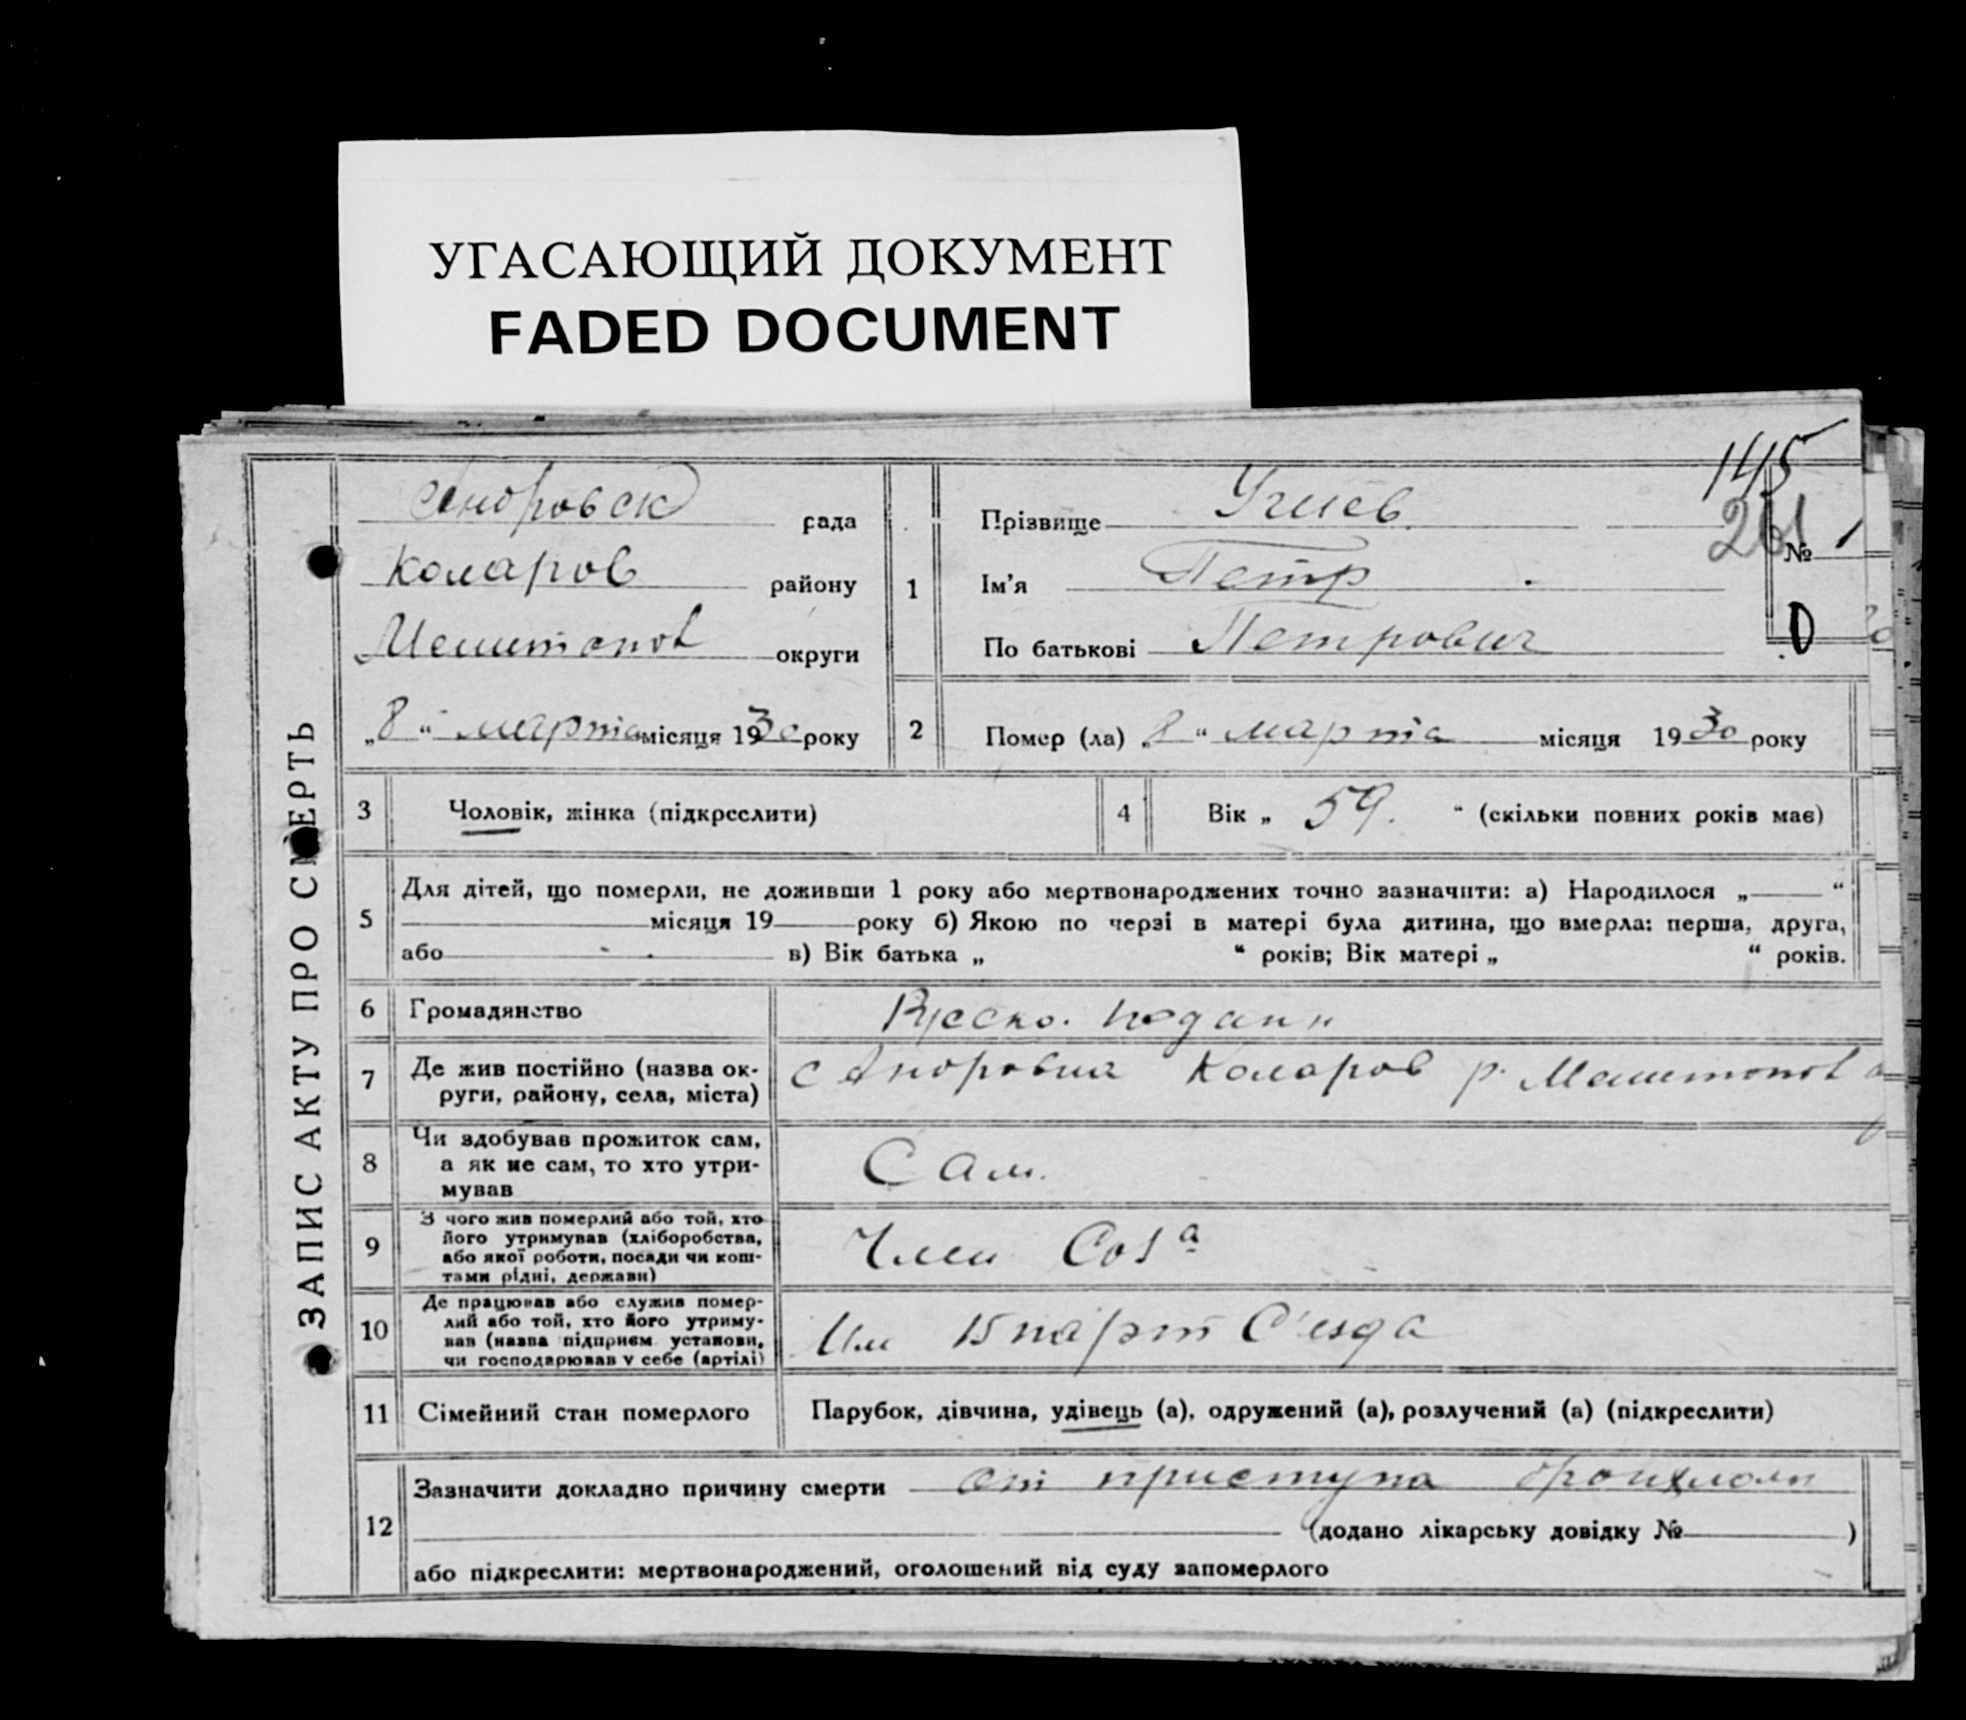 УГАСАЮЩИЙ ДОКУМЕНТ
FADED DOCUMENT
145
261
ЗАПИС АКТУ ПРО СМЕРТЬ
Андровск рада
Коларов району
Мелитопол округи
„8“ марта місяця 1930 року
1
Прізвище
Ім'я Петр
По батькові Петрович
№ 1
0
2 Помер (ла) „8“ марта місяця 1930 року
3 Чоловік, жінка (підкреслити)
4 Вік „59.“ (скільки повних років має)
5 Для дітей, що померли, не доживши 1 року або мертвонароджених точно зазначити: а) Народилося „ “
місяця 19 року б) Якою по черзі в матері була дитина, що вмерла: перша, друга,
або в) Вік батька „ “ років; Вік матері „ “ років.
6 Громадянство Русско. поданн
7 Де жив постійно (назва ок-
руги, району, села, міста)
с Андровка Коларов р. Мелитопол
8 Чи здобував прожиток сам,
а як не сам, то хто утри-
мував
Сам.
9 З чого жив померлий або той, хто
його утримував (хліборобства,
або якої роботи, посади чи кош-
тами рідні, держави)
Член Соза
10 Де працював або служив помер-
лий або той, хто його утриму-
вав (назва підприєм установи,
чи господарював у себе (артілі)
Им 15 парт С'езда
11 Сімейний стан померлого Парубок, дівчина, удівець (а), одружений (а), розлучений (а) (підкреслити)
12 Зазначити докладно причину смерти от приступа
(додано лікарську довідку № )
або підкреслити: мертвонароджений, оголошений від суду запомерлого